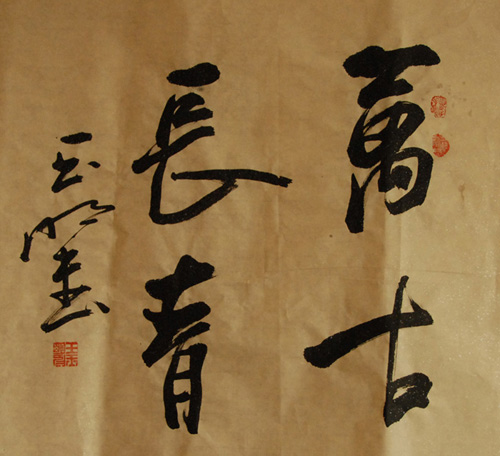 萬古
長青